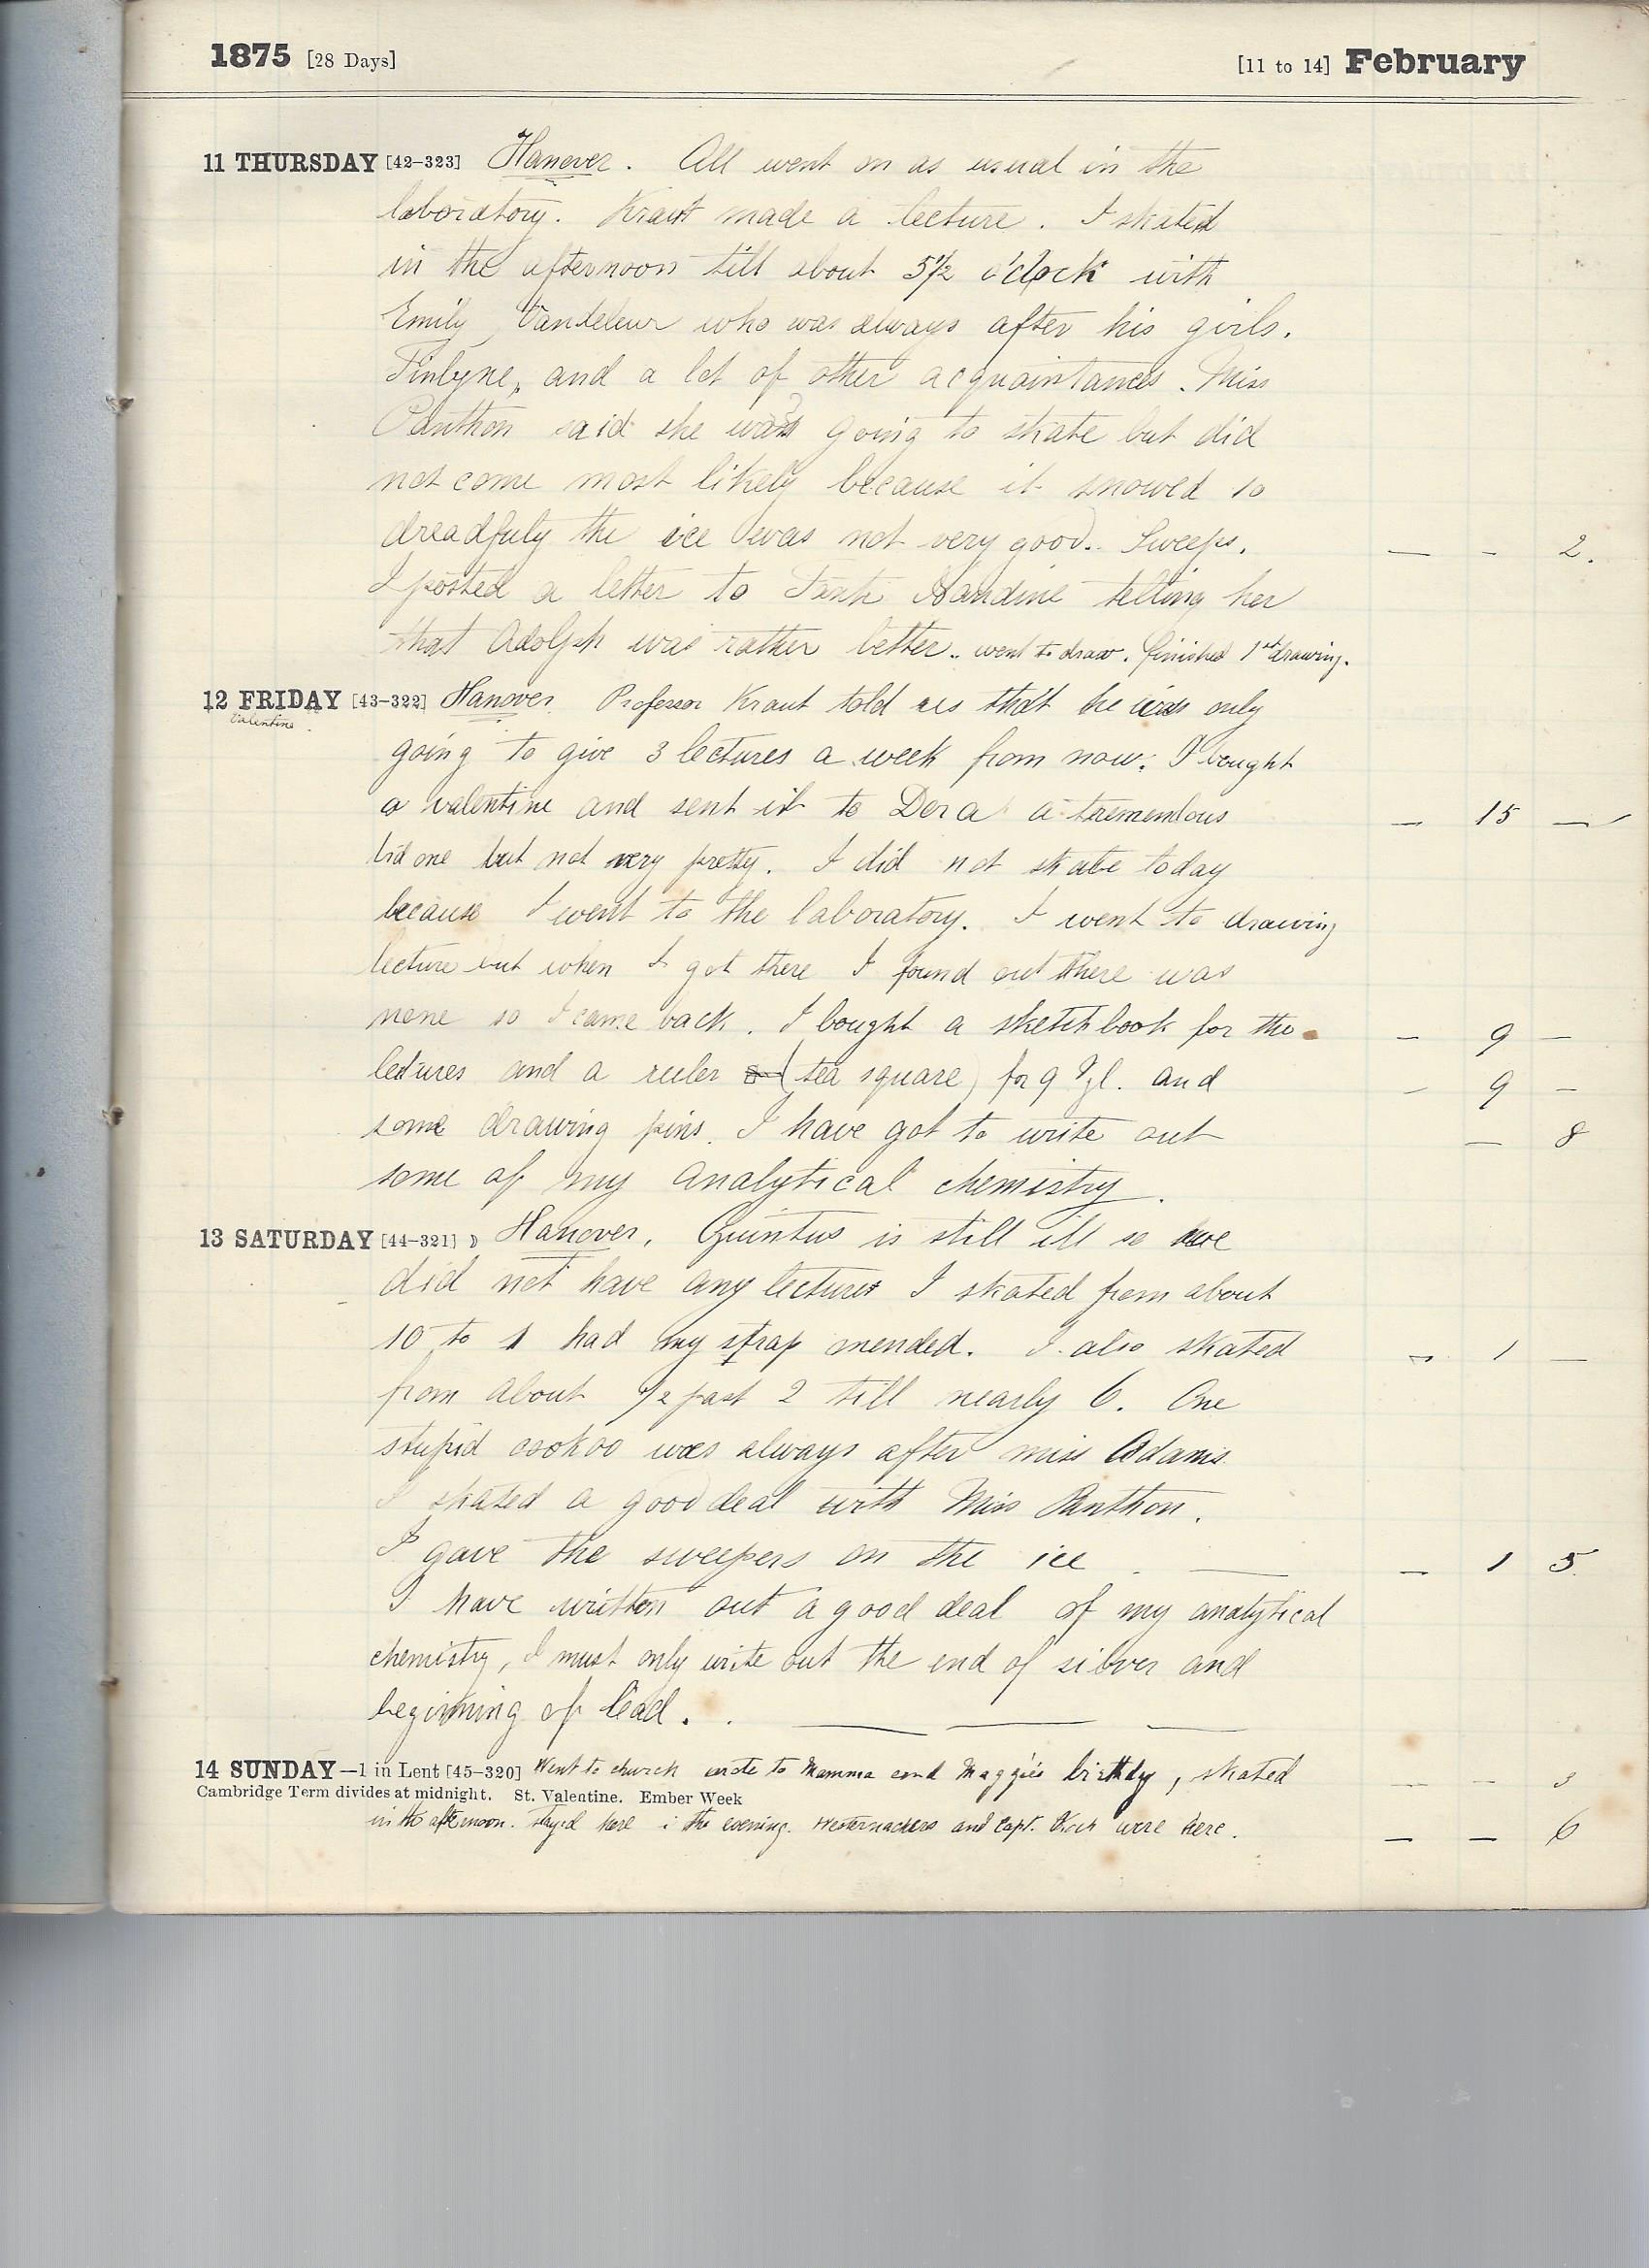 1875 [28 Days] [11 to 14] February
11 THURSDAY [42-323] Hanover. All went on as usual in the
laboratory. Kraut made a lecture. I skated
in the afternoon till about 5½ o'clock with
Emily, Vandeleur who was always after his girls.
and a lot of other acquaintances. Miss
Panthon said she was going to skate but did
not come most likely because it snowed so
dreadfuly the ice was not very good. Sweeps. — - 2.
I posted a letter to telling her
that Adolph was rather better. went to draw. finished 1st drawing.
12 FRIDAY [43-322] Hanover. Professor Kraut told us that he was only
Valentine
going to give 3 lectures a week from now. I bought
a valentine and sent it to Dora a tremendous — 15 —
one but not very pretty. I did not skate today
because I went to the laboratory. I went to drawing
lecture but when I got there I found out there was
none so I came back. I bought a sketch book for the - 9 -
lectures and a ruler (tea square) for 9 and - 9 -
some drawing pins. I have got to write out — 8
some of my analytical chemistry.
13 SATURDAY [44-321] Hanover. Quintus is still ill so we
did not have any lectures I skated from about
10 to 1 had my strap mended. I also skated - 1 —
from about ½ past 2 till nearly 6. One
stupid cookoo was always after miss Adams.
I skated a good deal with Miss Panthon.
I gave the sweepers on the ice . — — 1 5.
I have written out a good deal of my analytical
chemistry, I must only write out the end of silver and
beginning of lead. . — — —
14 SUNDAY—1 in Lent [45-320] Went to church wrote to Mamma and Maggie's birthdy, skated — - 3
Cambridge Term divides at midnight. St. Valentine. Ember Week
in the afternoon. stayed here i the evening. Westernackers and Capt. were here. — — 6